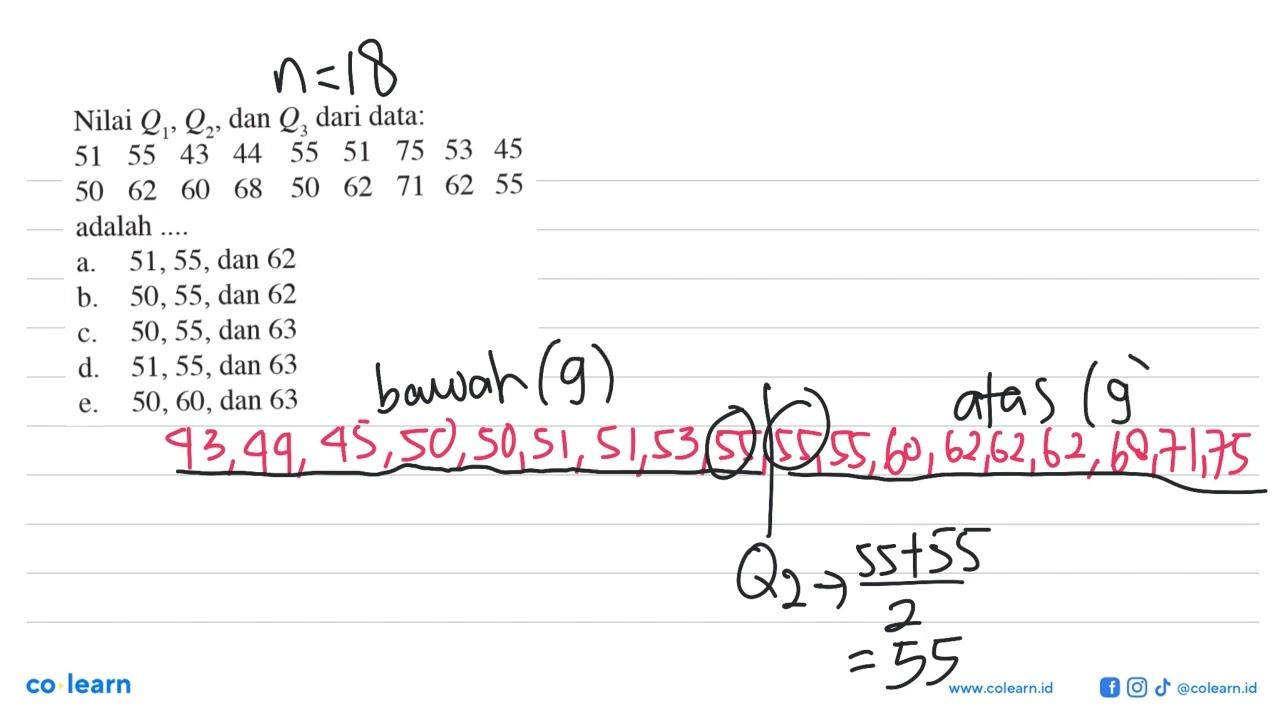 n=18
Nilai Q₁, Q₂, dan Q₃ dari data:
51 55 43 44 55 51 75 53 45
50 62 60 68 50 62 71 62 55
adalah ....
a. 51, 55, dan 62
b. 50, 55, dan 62
c. 50, 55, dan 63
d. 51, 55, dan 63
e. 50, 60, dan 63
bawah (9) atas (9
43, 44, 45, 50, 50, 51, 51, 53, 55, 55, 55, 60, 62, 62, 62, 68, 71, 75
Q₂ → 55+55
2
= 55
co learn
www.colearn.id @colearn.id